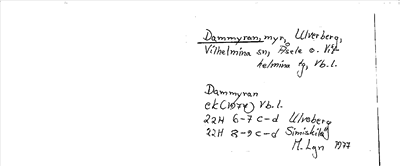 Dammyran, myr, Ulverberg,
Vilhelmina sn, Åsele o. Vil-
helmina tg, Vb. l.
Dammyran
ek (1974) Vb. l.
22H 6-7 c-d Ulvoberg
22H 8-9 c-d
M. Lgn 1977